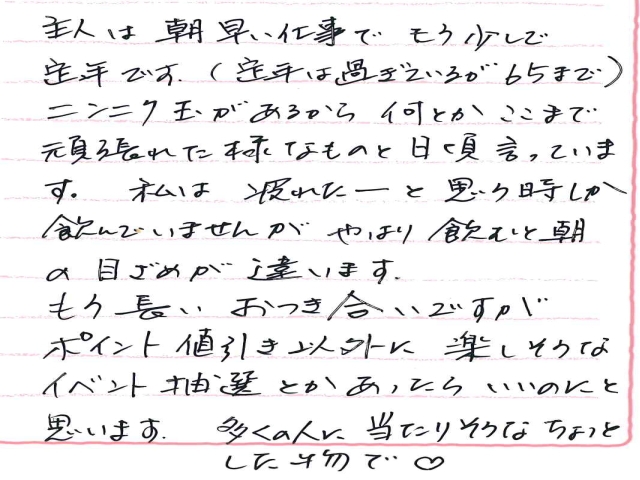 主人は朝早い仕事でもう少しで
定年です.(定年は過ぎているが65まで)
ニンニク玉があるから何とかここまで
頑張れた様なものと日頃言っていま
す。私は疲れたーと思う時しか
飲んでいませんがやはり飲むと朝
の目ざめが違います.
もう長いおつき合いですが
ポイント値引き以外に楽しそうな
イベント抽選とかあったらいいのにと
思います.多くの人に当たりそうなちょっと
した物で♡